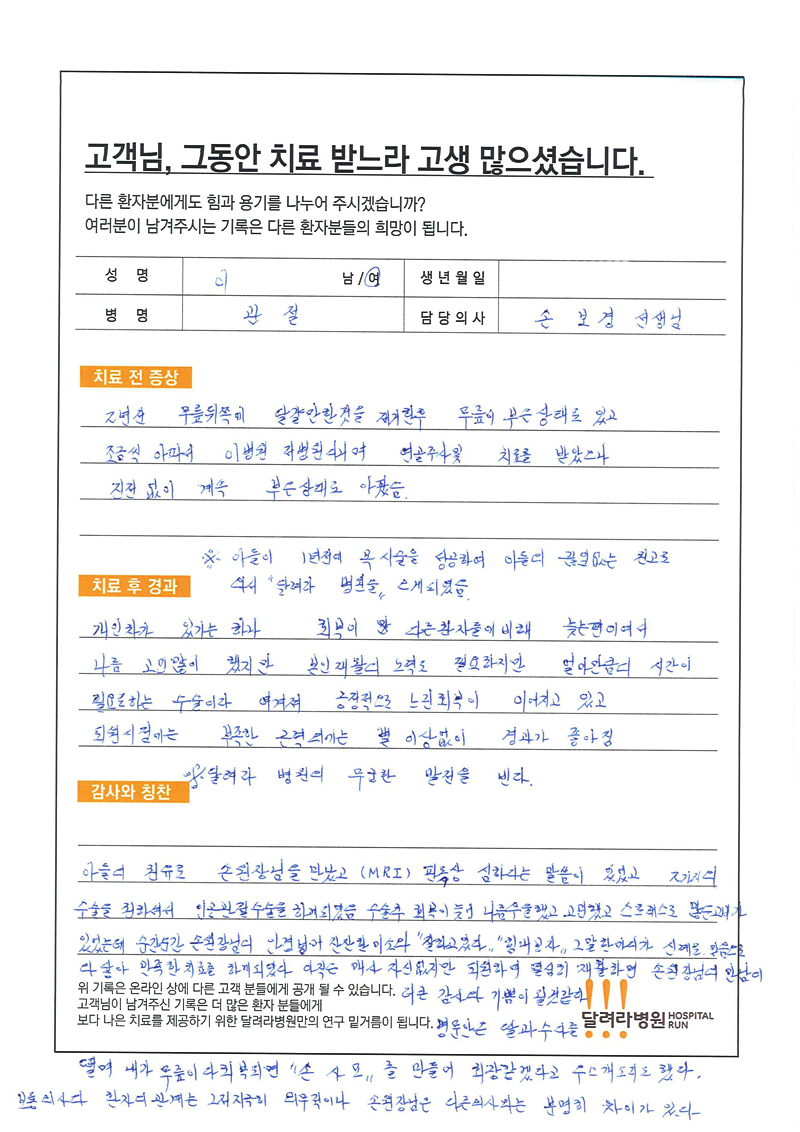 고객님, 그동안 치료 받느라 고생 많으셨습니다.
다른 환자분에게도 힘과 용기를 나누어 주시겠습니까?
여러분이 남겨주시는 기록은 다른 환자분들의 희망이 됩니다.
성 명 이 남 / 여 생 년 월 일
병 명 관 절 담 당 의 사 손 보 경 선생님
치료 전 증상
2년전 무릎뒤쪽에 달걀만한것을 제거한후 무릎이 부은상태로 있고
조금씩 아파서 이병원 저병원에서 연골주사및 치료를 받았으나
진전 없이 계속 부은상태로 아팠음.
※ 아들이 1년전에 목 시술을 성공하여 아들의 끊임없는 권고로
와서 "달려라 병원을" 오게되었음.
치료 후 경과
개인차가 있기는 하나 회복이 다른환자들에비해 늦는편이여서
나름 고민많이 했지만 본인재활의 노력도 필요하지만 얼마만큼의 시간이
필요로하는 수술이라 여겨져 긍정적으로 느린회복이 이어지고 있고
퇴원시점에는 부족한 근력외에는 별 이상없이 경과가 좋아짐
달려라 병원의 무궁한 발전을 빈다.
감사와 칭찬
아들의 권유로 손원장님을 만났고 (MRI) 판독상 심하다는 말씀이 있었고 2가지의
수술을 권하셔서 인공관절수술을 하게되었음 수술후 회복이 늦어 나름우울했고 고민했고 스트레스로 많은고비가
있었는데 순간순간 손원장님의 안경넘어 잔잔한미소와 "잘하고있다" "힘내보자" 그말한마디가 신뢰로 믿음으로
다살아 만족한치료를 하게되었다 아직은 매사 자신없지만 퇴원하여 열심히 재활하면 손원장님의 만남이
위 기록은 온라인 상에 다른 고객 분들에게 공개 될 수 있습니다. 더큰 감사와 기쁨이 될것같다
고객님이 남겨주신 기록은 더 많은 환자 분들에게
보다 나은 치료를 제공하기 위한 달려라병원만의 연구 밑거름이 됩니다.
달려라병원 HOSPITAL RUN
내가 무릎이다회복되면 "손 사 모"를 만들어 회장같겠다고 우스개소리도 했다.
보통의사와 환자의관계는 그저지극히 의무적이나 손원장님은 다른의사와는 분명히 차이가 있다